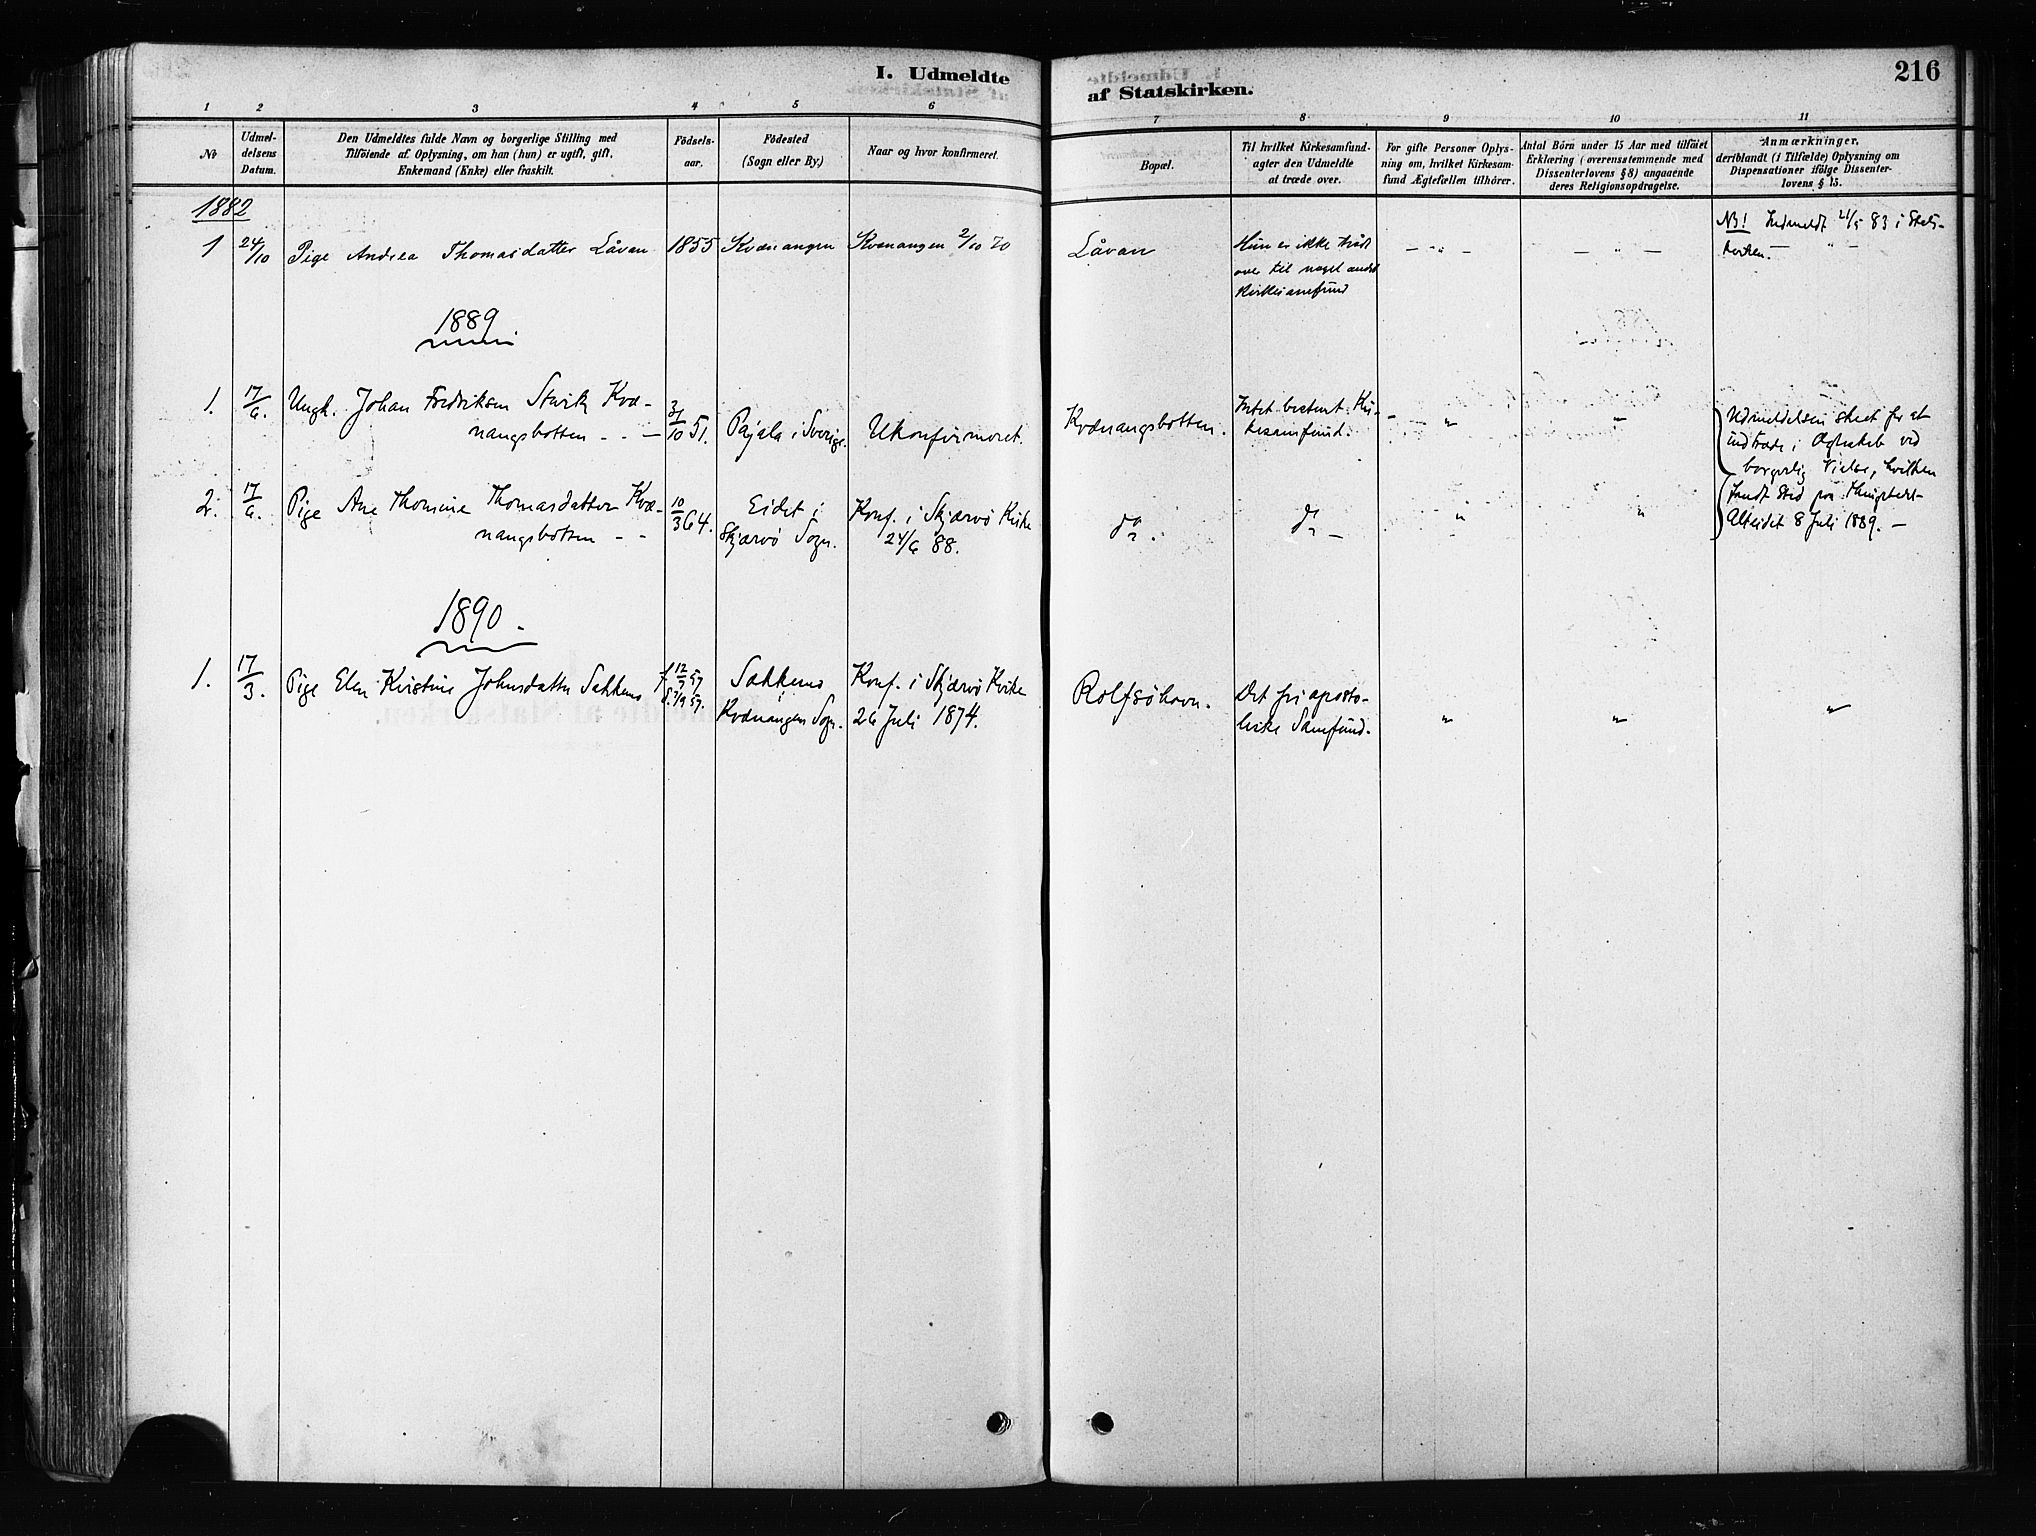 I. Udmeldte
af Statskirken.
216
1 2 3 4 5 6 7 8 9 10 11
No
Udmel-
delsens
Datum.
Den Udmeldtes fulde Navn og borgerlige Stilling med
Tilföiende af Oplysning, om han (hun) er ugift, gift,
Enkemand (Enke) eller fraskilt.
Födsels-
aar.
Födested
(Sogn eller By.)
Naar og hvor konfirmeret.
Bopæl.
Til hvilket Kirkesamfund-
agter den Udmeldte
at træde over.
For gifte Personer Oplys-
ning om, hvilket Kirkesam-
fund Ægtefællen tilhörer.
Antal Börn under 15 Aar med tilföiet
Erklæring (overensstemmende med
Dissenterlovens § 8) angaaende
deres Religionsopdragelse.
Anmærkninger,
deriblandt (i Tilfælde) Oplysning om
Dispensationer ifölge Dissenter-
lovens § 15.
1882
1
24/10
Pige Andrea Thomasdatter Låvan
1855
Kvænangen
Kvænangen 2/10 70
Låvan
Hun er ikke trådt
over til noget andet
Kirkesamfund
— " —
— " —
NB! Indmeldt 21/5 83 i Stats-
kirken. — " —
1889
1.
17/6.
Ungk. Johan Fredriksen Kvæ-
nangsbotten - - —
31/10 51.
Pajala i Sverige.
Ukonfirmeret.
Kvænangsbotten.
Intet bestemt Kir-
kesamfund.
— "
"
Udmeldelsen skeet for at
indtræde i Ægteskab ved
borgerlig Vielse, hvilken
fandt Sted paa Thingstedet
Alteidet 8 Juli 1889. —
2.
17/6.
Pige Ane Thomine Thomasdatter Kvæ-
nangsbotten - -
10/3 64.
Eidet i
Skjærvö Sogn.
Konf. i Skjærvö Kirke
24/6 88.
do.
do —
"
"
1890.
1.
17/3.
Pige Elen Kristine Johnsdatter Sakkemo
f. 12/7 57
d. 7/9 57.
Sakkemo
Kvænangen Sogn.
Konf. i Skjærvö Kirke
26 Juli 1874.
Rolfsöhavn.
Det fri aposto-
liske Samfund.
"
"
"